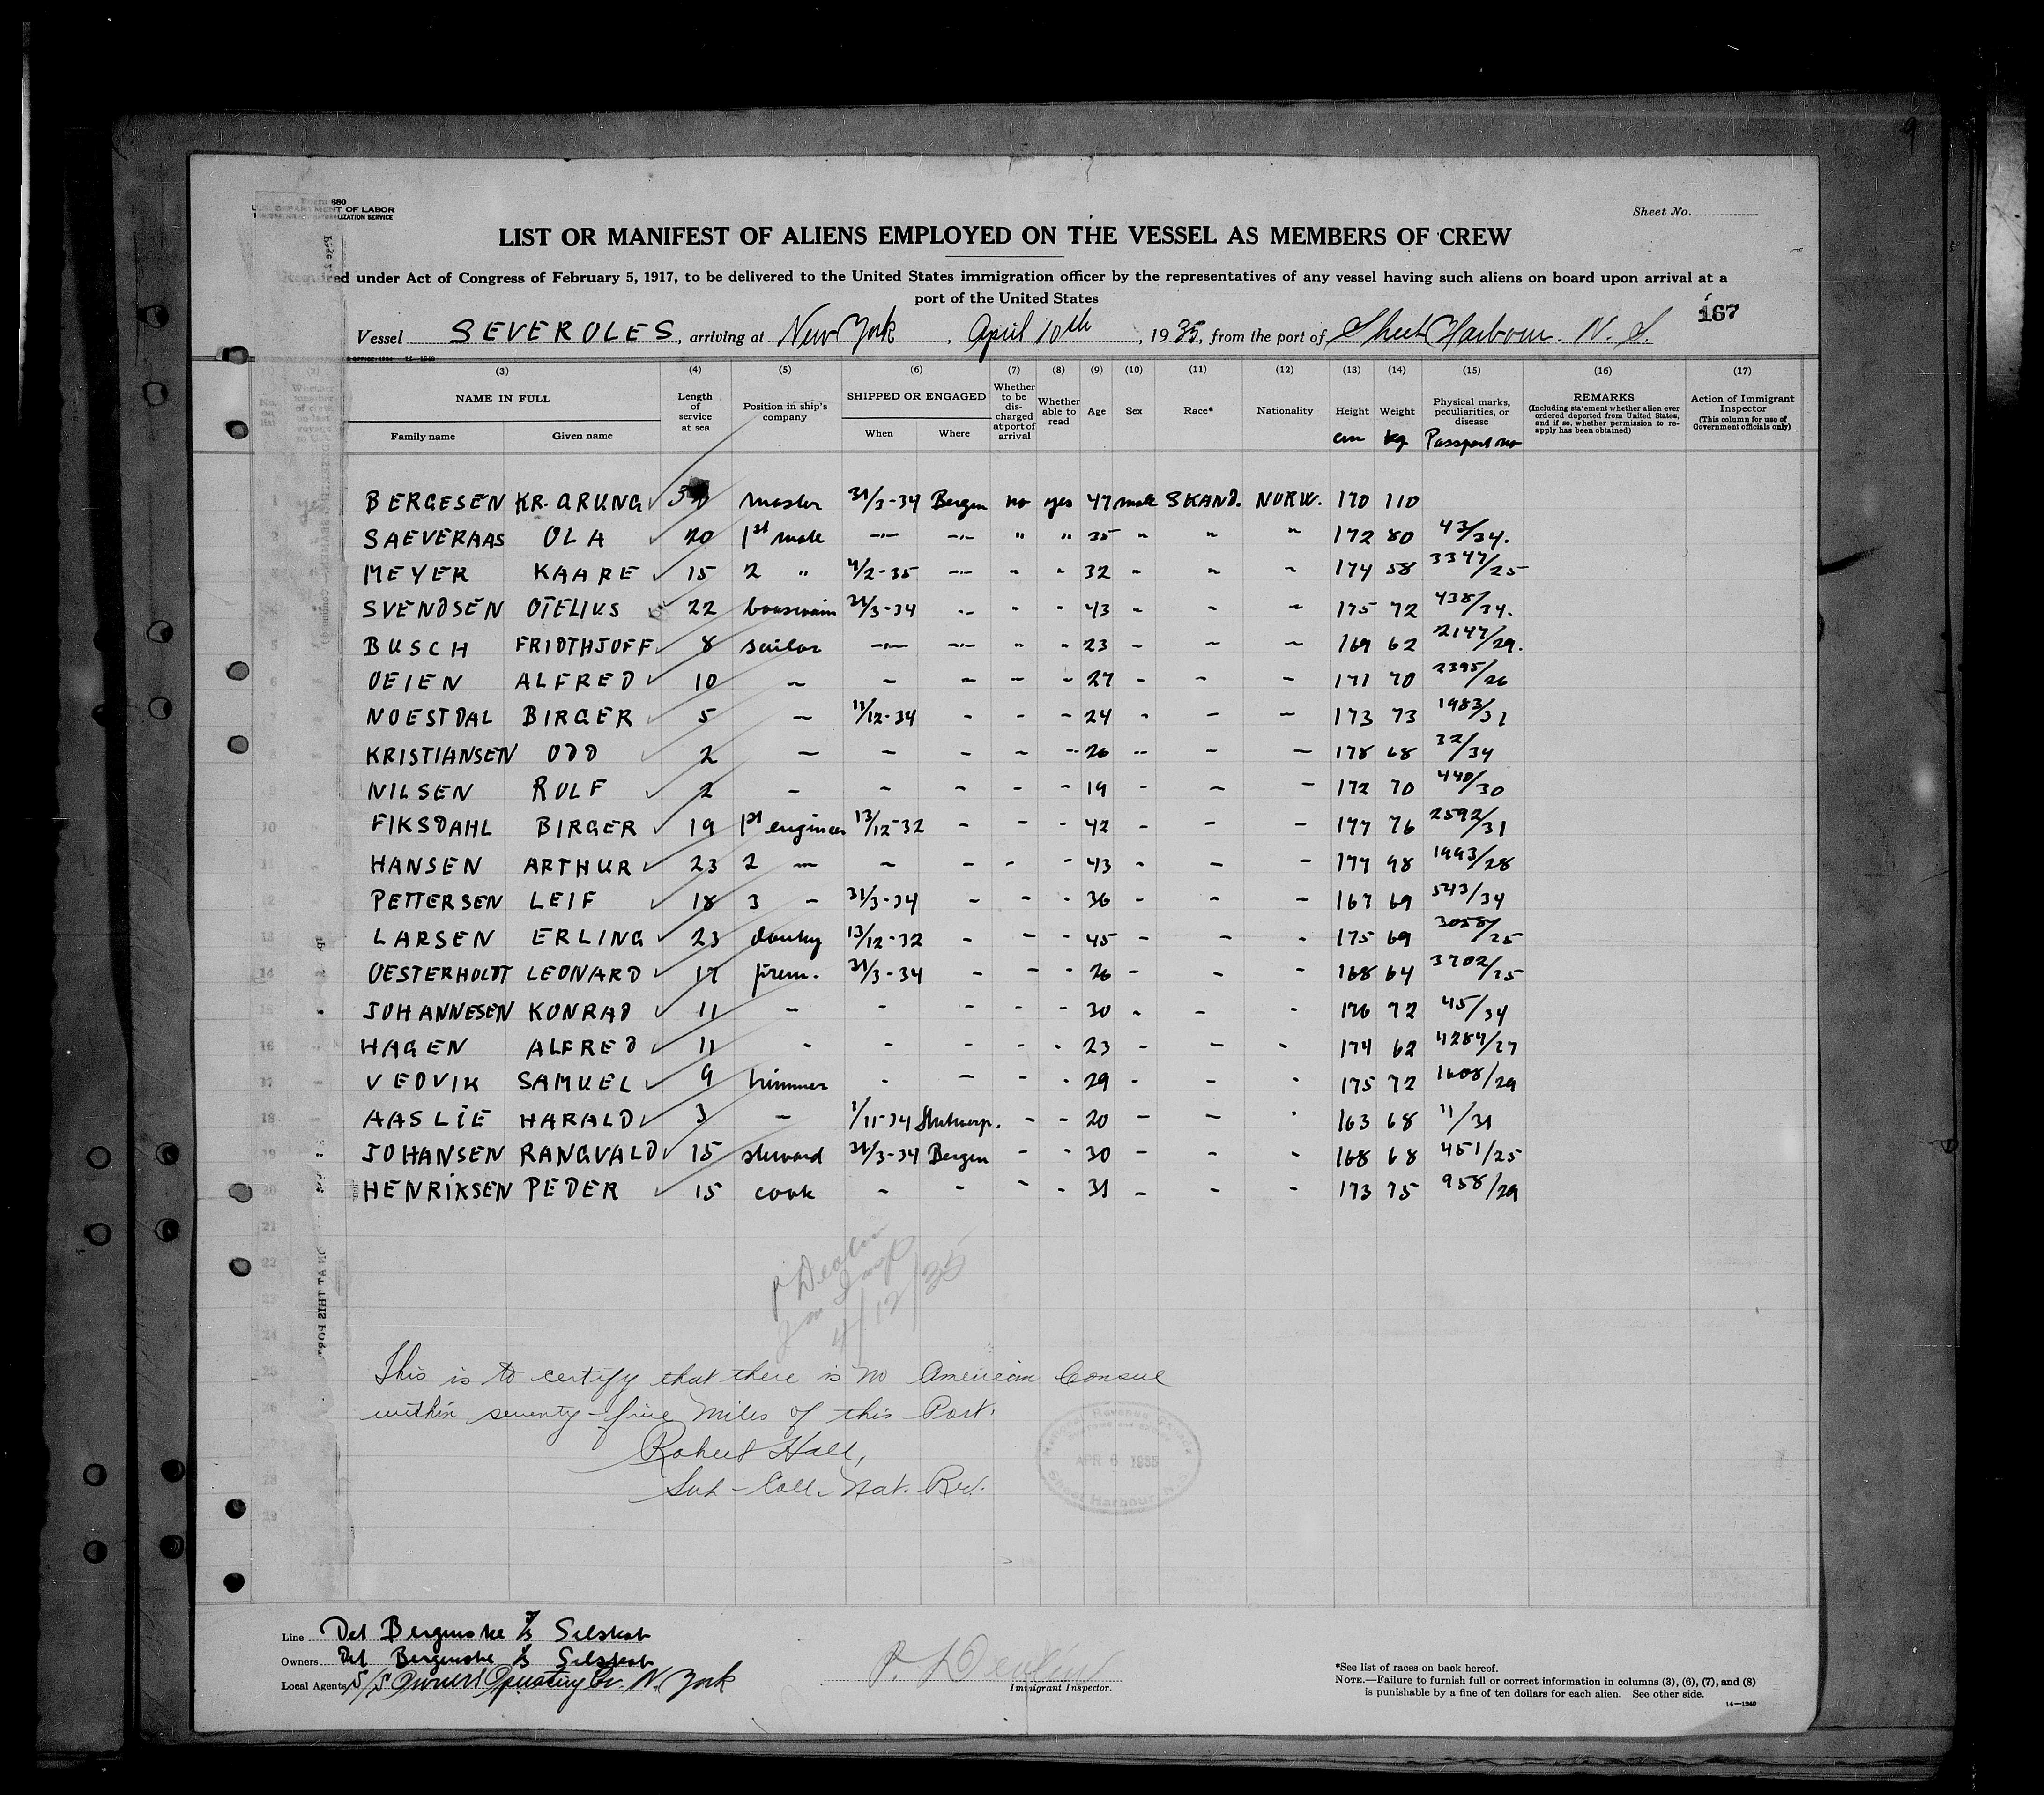 9
Form 680
U.S. DEPARTMENT OF LABOR
IMMIGRATION AND NATURALIZATION SERVICE
Sheet No.
LIST OR MANIFEST OF ALIENS EMPLOYED ON THE VESSEL AS MEMBERS OF CREW
Required under Act of Congress of February 5, 1917, to be delivered to the United States immigration officer by the representatives of any vessel having such aliens on board upon arrival at a
port of the United States
167
Vessel SEVEROLES, arriving at New York, April 10th, 1935, from the port of Sheet Harbour. N. S.
(3) (4) (5) (6) (7) (8) (9) (10) (11) (12) (13) (14) (15) (16) (17)
NAME IN FULL Length of service at sea Position in ship's company SHIPPED OR ENGAGED Whether to be discharged at port of arrival Whether able to read Age Sex Race* Nationality Height Weight Physical marks, peculiarities, or disease REMARKS (Including statement whether alien ever ordered deported from United States, and if so, whether permission to reapply has been obtained) Action of Immigrant Inspector (This column for use of Government officials only)
Family name Given name When Where cm kg Passport no
1 BERGESEN KR. GRUNG 30 master 31/3-34 Bergen no yes 47 male SKAND. NORW. 170 110
2 SAEVERAAS OLA 20 1st mate -"- -"- " " 35 " " " 172 80 43/34.
MEYER KAARE 15 2 " 4/2-35 -"- " " 32 - - - 174 58 3347/25
SVENDSEN OTELIUS 22 boatswain 31/3-34 -- - - 43 - - - 175 72 438/34.
5 BUSCH FRIDTHJOFF 8 sailor -"- -"- " - 23 - - - 169 62 2147/29.
6 OEIEN ALFRED 10 - - - - - 27 - - - 171 70 2395/26
7 NOESTDAL BIRGER 5 - 11/12-34 - - - 24 - - - 173 73 1983/31
8 KRISTIANSEN ODD 2 - - - - - 26 - - - 178 68 32/34
9 NILSEN ROLF 2 - - - - - 19 - - - 172 70 440/30
10 FIKSDAHL BIRGER 19 1st engineer 13/12-32 - - - 42 - - - 177 76 2592/31
11 HANSEN ARTHUR 23 2 - - - - - 43 - - - 177 98 1993/28
12 PETTERSEN LEIF 18 3 - 31/3-34 - - - 36 - - - 167 69 543/34
13 LARSEN ERLING 23 donky 13/12-32 - - - 45 - - - 175 69 3058/25
14 OESTERHOLDT LEONARD 17 firem. 31/3-34 - - - 26 - - - 168 64 3702/25
15 JOHANNESEN KONRAD 11 - - - - - 30 - - - 176 72 45/34
16 HAGEN ALFRED 11 - - - - - 23 - - - 174 62 4284/27
17 VEDVIK SAMUEL 9 trimmer - - - - 29 - - - 175 72 1608/29
18 AASLIE HARALD 3 - 1/11-34 Antwerp. - - 20 - - - 163 68 11/31
19 JOHANSEN RANGVALD 15 steward 31/3-34 Bergen - - 30 - - - 168 68 451/25
20 HENRIKSEN PEDER 15 cook - - - - 31 - - - 173 75 958/29
21
22
23
24
25
26
28
29
P Devlin
Im Insp
4/12/35
This is to certify that there is no American Consul
within seventy-five miles of this Port.
Robert Hall,
Sub-Coll. Nat. Rev.
National Revenue, Canada
APR 6 1935
Sheet Harbour, N.S.
Line Det Bergenske D/S Selskab
Owners Det Bergenske D/S Selskab
Local Agents S/S Owners Operating Co. N. York
P. Devlin
Immigrant Inspector.
*See list of races on back hereof.
NOTE.—Failure to furnish full or correct information in columns (3), (6), (7), and (8)
is punishable by a fine of ten dollars for each alien. See other side.
14—1240